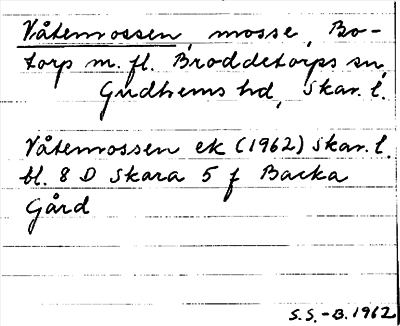 Våtemossen, mosse, Bo-
torp m. fl. Broddetorps sn,
Gudhems hd, Skar. l.
Våtemossen ek (1962) Skar. l.
bl. 8 D Skara 5 f Backa
Gård
S.S.-B. 1962